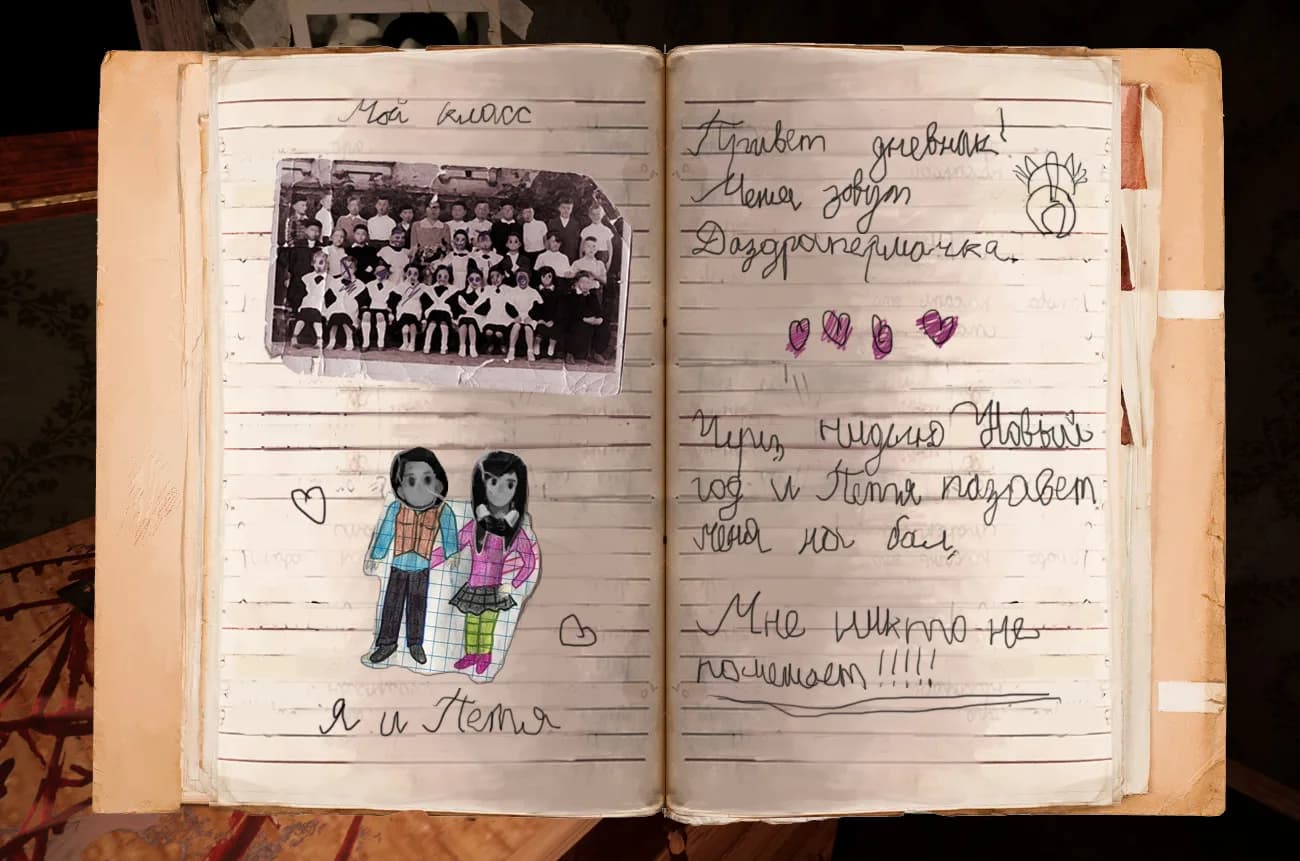 Мой класс
Я и Петя
Привет дневник!
Меня зовут
Даздрапермачка.
Чириз нидилю Новый
год и Петя пазавет
меня на бал,
Мне никто не
помешает!!!!!